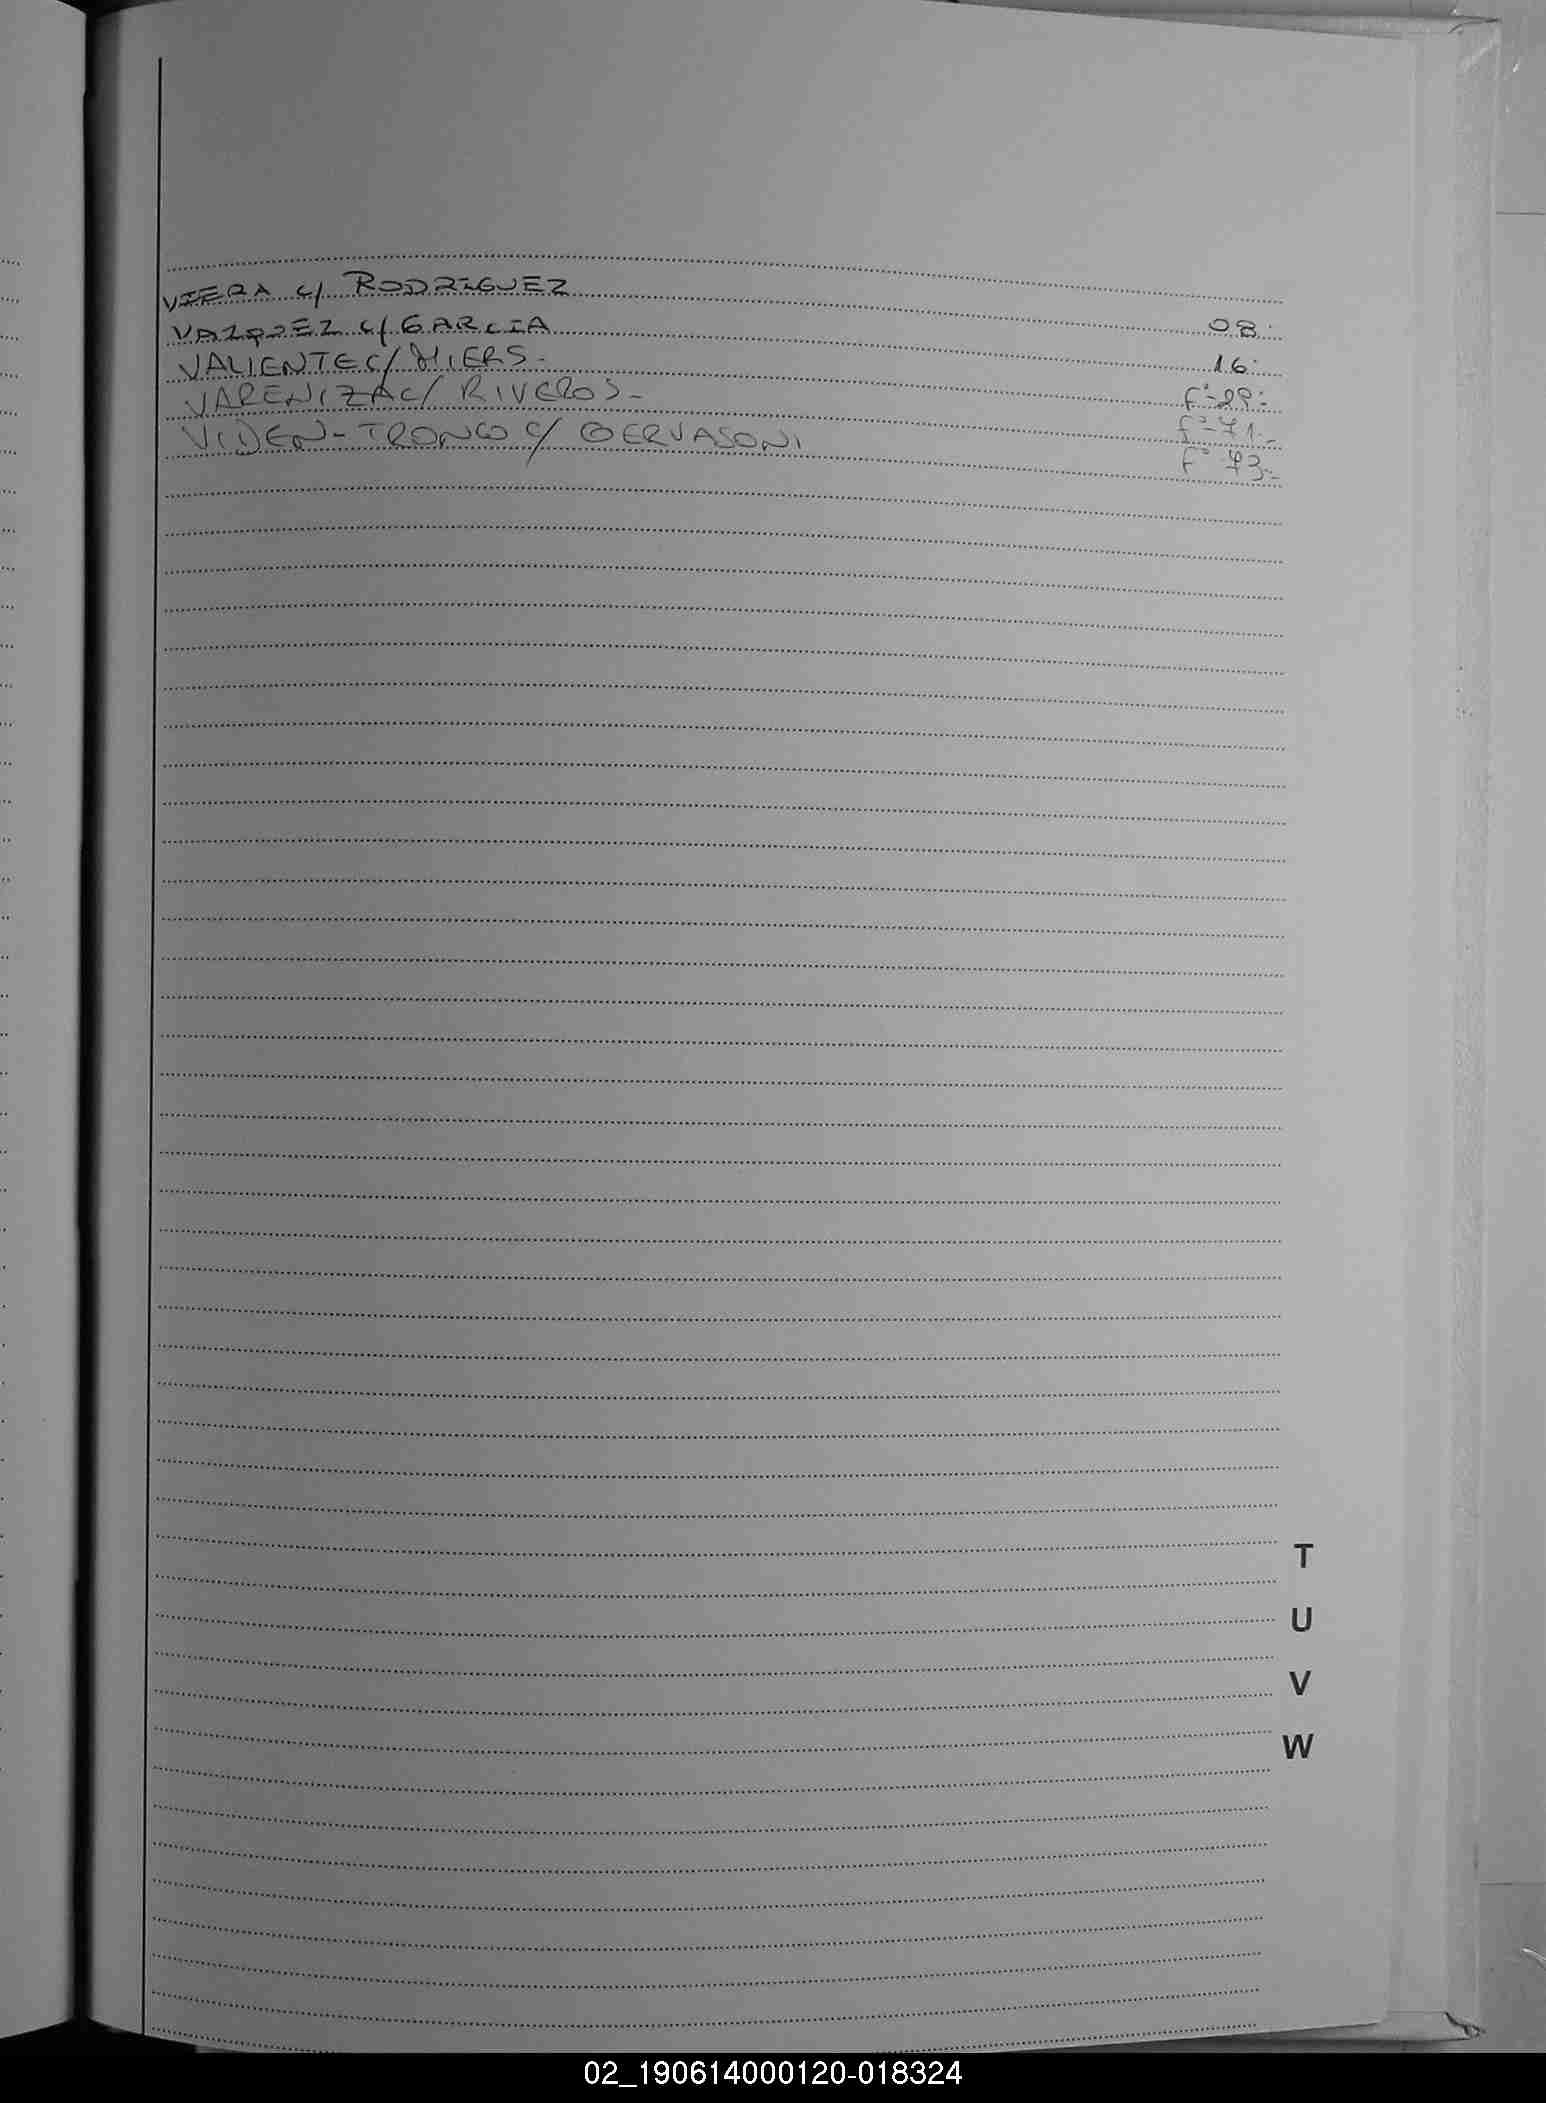 VIERA c/ RODRIGUEZ 08.-
VAZQUEZ c/ GARCIA 16.-
VALIENTE C/ MIERS.- f°-29.-
VARENIZA C/ RIVEROS.- f°-71.-
VIDEN-TRONCO c/ GERVASONI f° 73.-
T
U
V
W
02_190614000120-018324